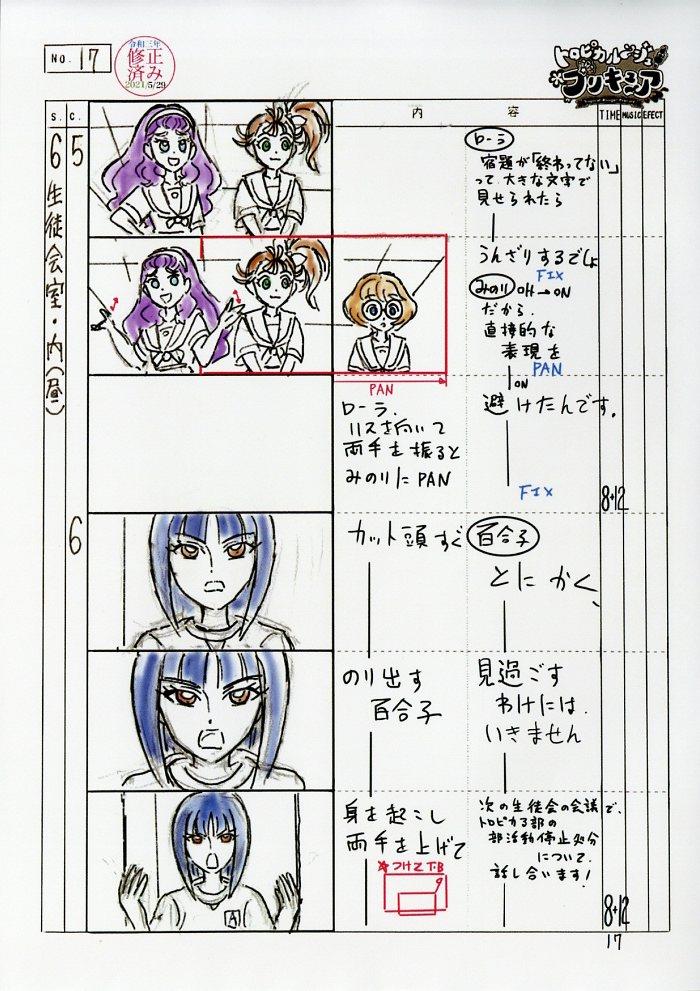 NO. 17
令和三年
修正
済み
2021/5/29
トロピカル〜ジュ
プリキュア
S. C. 内 容 TIME MUSIC EFECT
6 5
生徒会室・内(昼)
ローラ
宿題が「終わってない」
って、大きな文字で
見せられたら
うんざりするでしょ
FIX
みのり OFF→ON
だから、
直接的な
表現を
PAN
PAN
ON
ローラ、
両手を振ると
みのりにPAN
避けたんです。
FIX
8+12
6
カット頭すぐ
百合子
とにかく、
のり出す
百合子
見過ごす
わけには、
いきません
身を起こし
両手を上げて
つけてT.B
次の生徒会の会議で、
トロピカる部の
部活動停止処分
について、
話し合います!
A
8+12
17